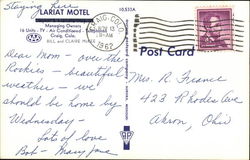 Staying here
LARIAT MOTEL
10,553A
Managing Owners
16 Units - TV - Air Conditioned
Craig, Colo.
BILL and CLAIRE
AAA
CRAIG, COLO.
NOV 13
AM
1962
Post Card
Dear Mom - over the
Rockies - beautiful
weather - we
should be home by
Wednesday -
Lots of love
Bob - Mary Jane
Mrs. R France
423 Rhodes Ave
Akron, Ohio